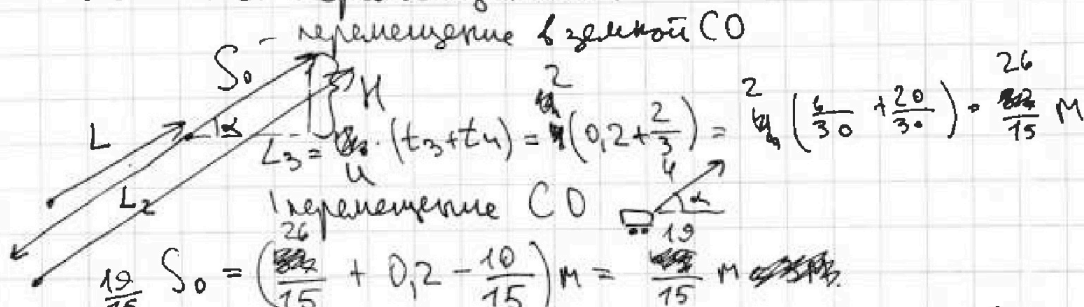 - перемещение в земной СО
S₀
L
α
H
L₂
L₃ = u · (t₃+t₄) = 2 (0,2 + 2/3) = 2 (6/30 + 20/30) = 26/15 м
перемещение СО
u
α
19/15 S₀ = (26/15 + 0,2 - 10/15) м = 19/15 м